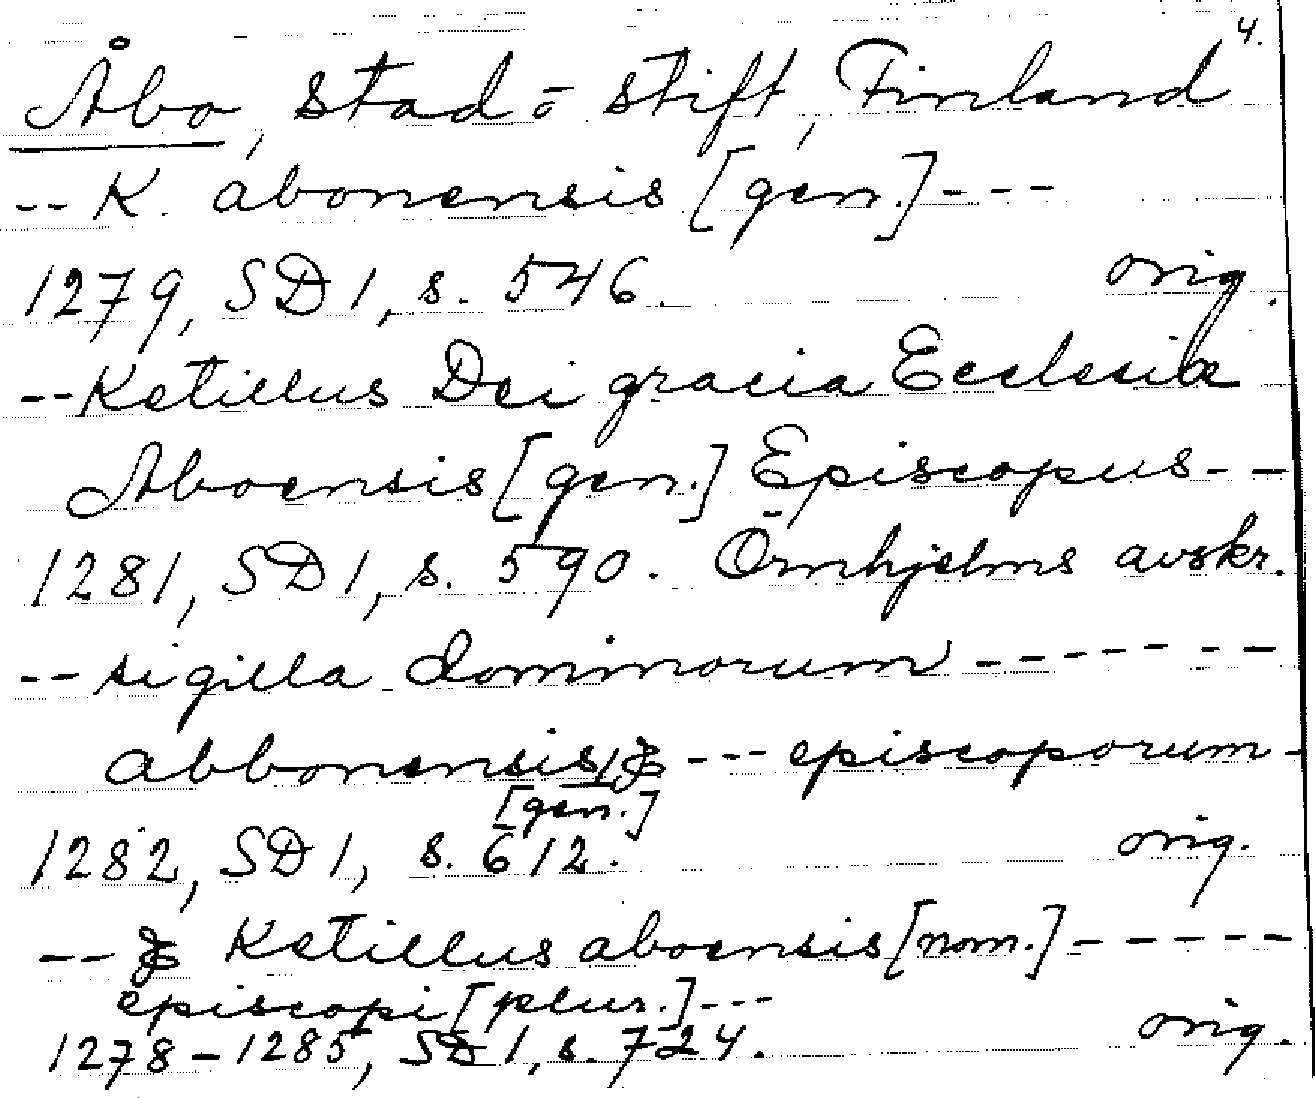 4.
Åbo, stad o stift, Finland
-- K. abonensis [gen.] ---
1279, SD 1, s. 546. orig.
-- Ketillus Dei gracia Ecclesiæ
Aboensis [gen.] Episcopus --
1281, SD 1, s. 590. Örnhjelms avskr.
-- sigilla dominorum ------ --
abbonensis, & --- episcoporum -
[gen.]
1282, SD 1, s. 612. orig.
-- & Ketillus aboensis [nom.] -----
episcopi [plur.] ---
1278-1285, SD 1, s. 724. orig.